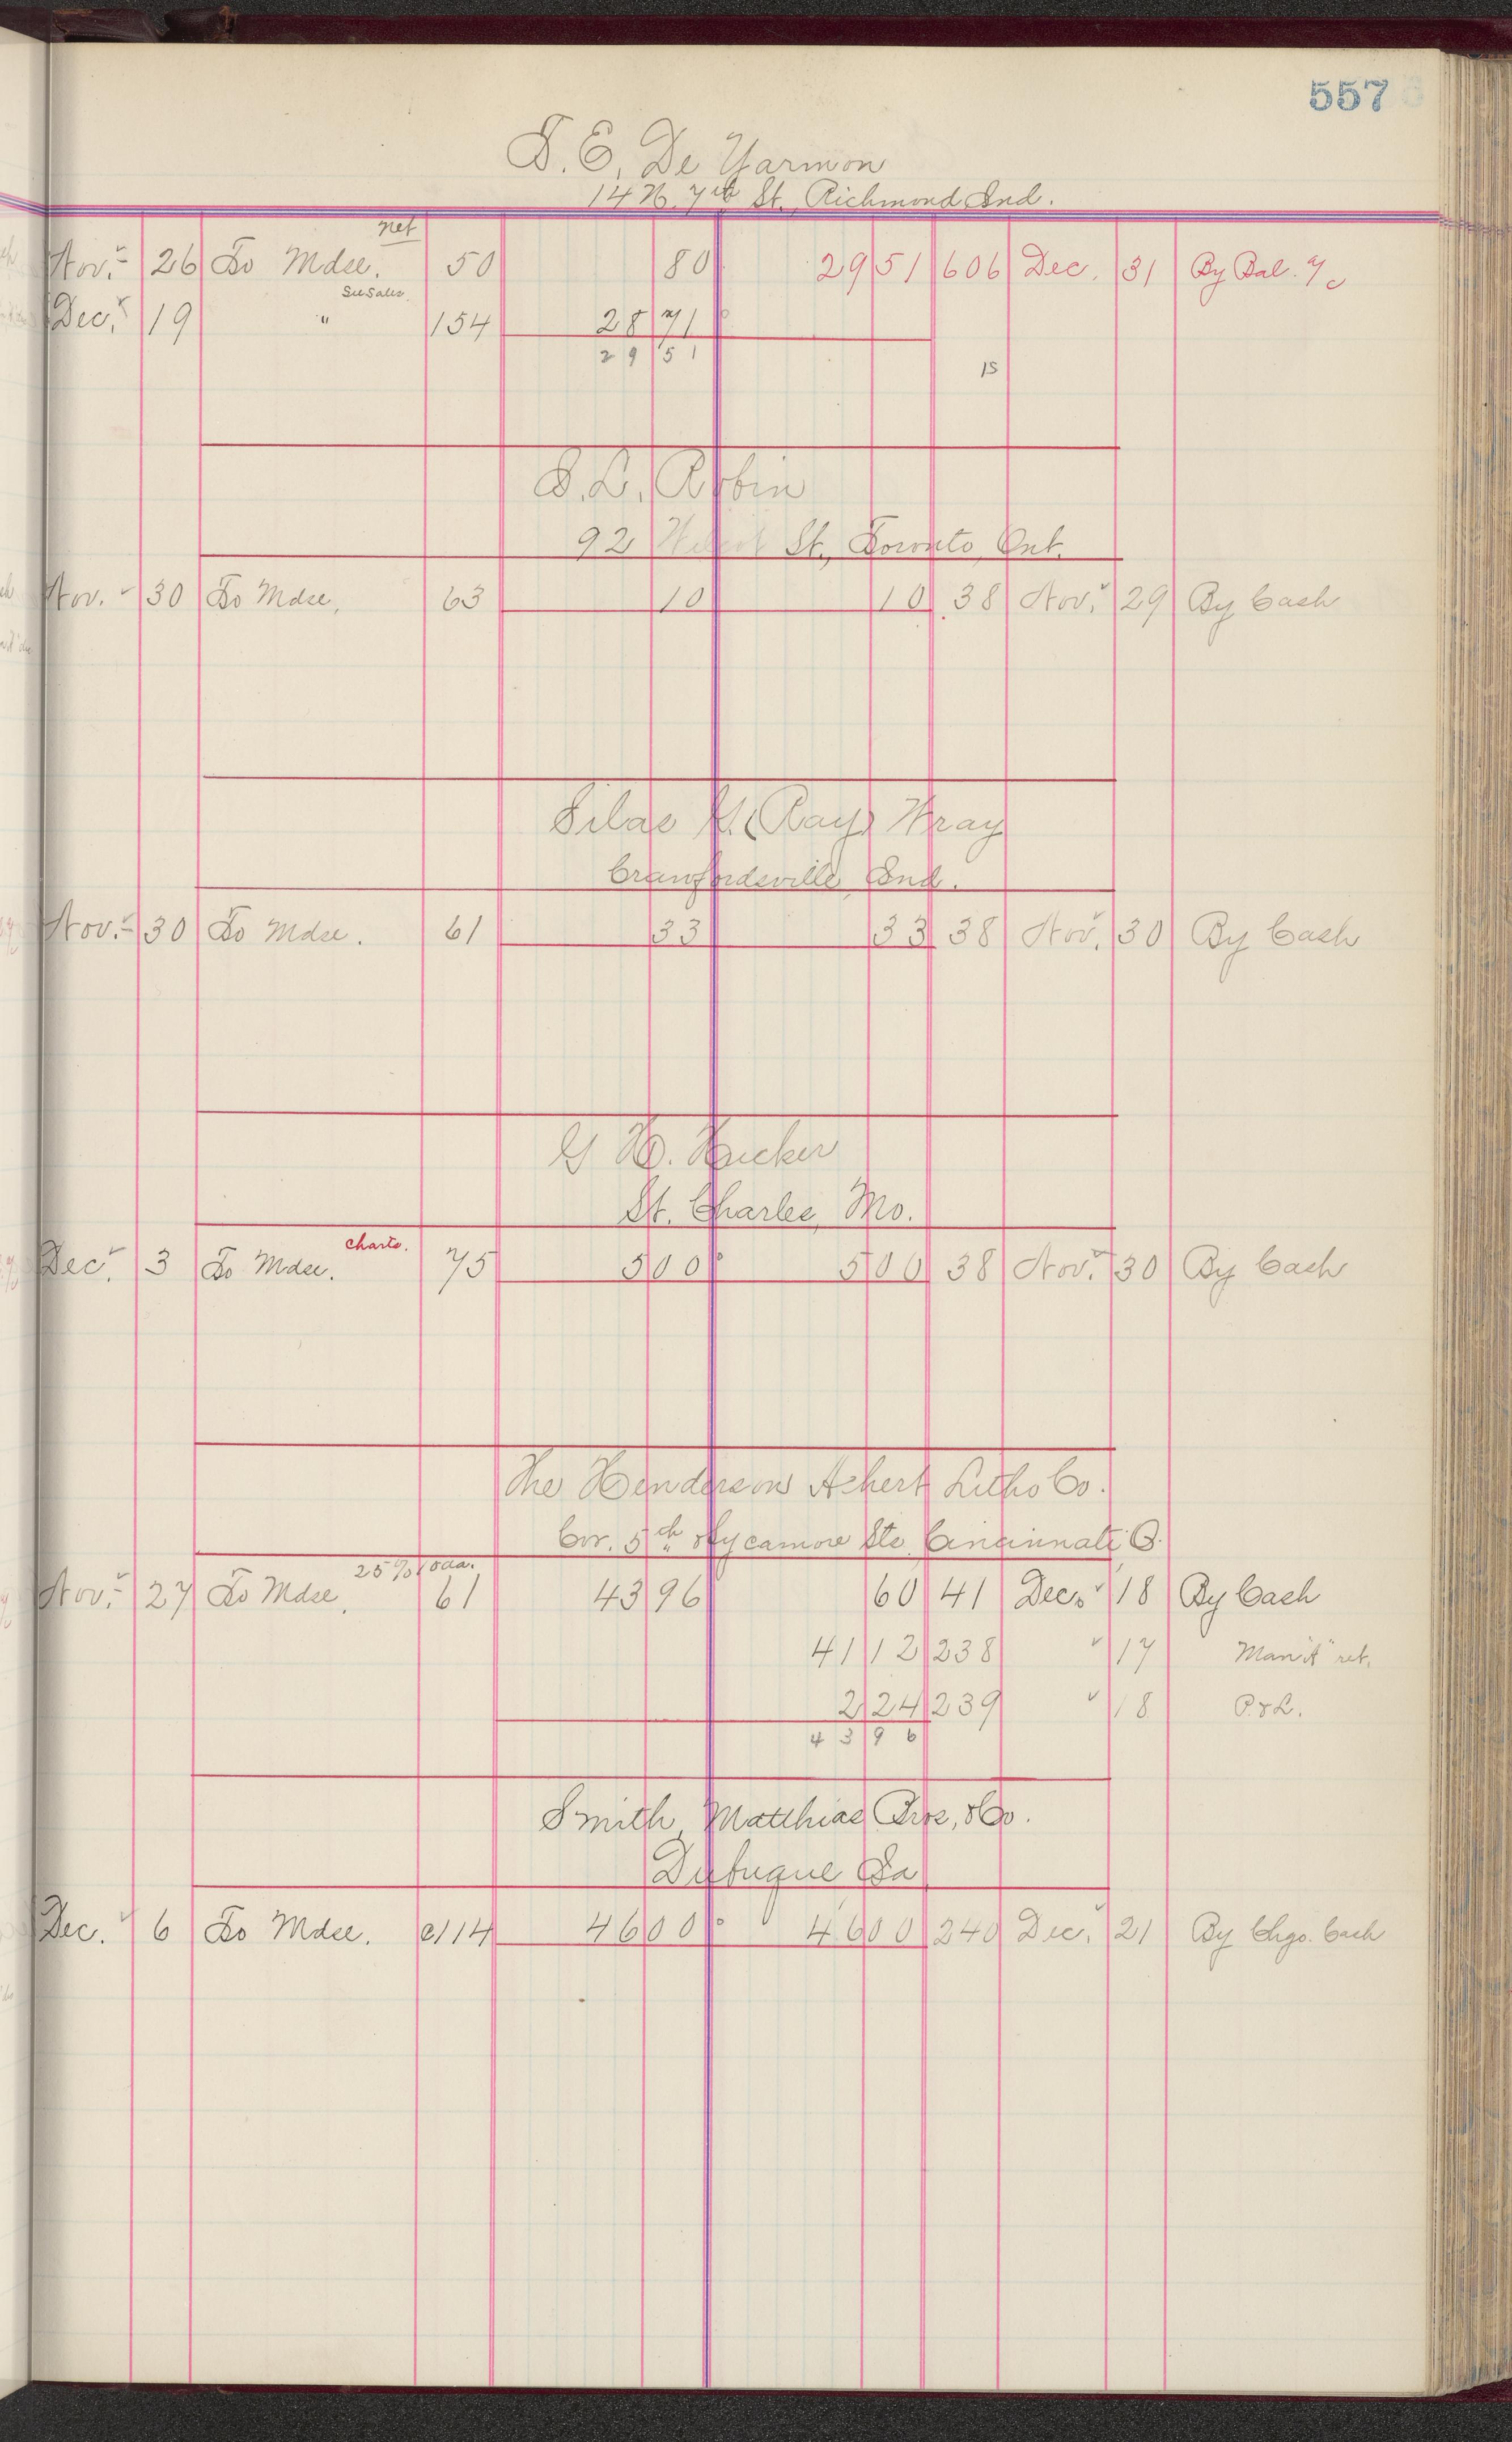 557
T. E. De Yarmon
14 N. 7th St., Richmond Ind.
net
Nov. 26 To Mdse. 50 80 29 51 606 Dec. 31 By Bal. a/c
See Sales
Dec. 19 " 154 28 71
29 51
15
S. L. Robin
92 St., Toronto, Ont.
Nov. 30 To Mdse. 63 10 10 38 Nov. 29 By Cash
Silas (Ray) Wray
Crawfordsville, Ind.
Nov. 30 To Mdse. 61 33 33 38 Nov. 30 By Cash
G H. Hucker
St. Charles, Mo.
charts.
Dec. 3 To Mdse. 75 5 00 5 00 38 Nov. 30 By Cash
The Henderson Achert Litho Co.
Cor. 5th & Sycamore Sts. Cincinnati O.
25%
Nov. 27 To Mdse. 61 43 96 60 41 Dec. 18 By Cash
41 12 238 17 Man'f ret.
2 24 239 18 P. & L.
43 96
Smith, Matthias Bros, & Co.
Dubuque Ia
Dec. 6 To Mdse. C114 46 00 46 00 240 Dec. 21 By Chgo. Cash